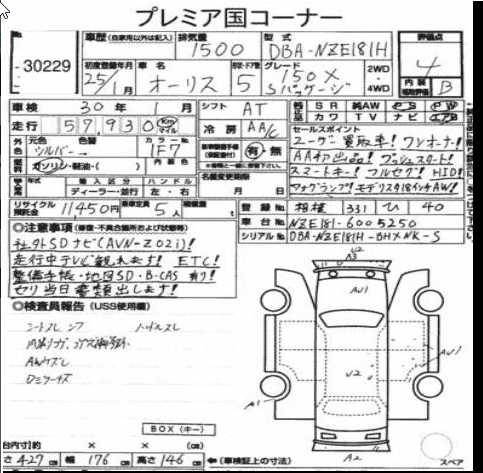 プレミア国コーナー
30229
車歴 (自家用以外は記入)
排気量 1500
型式 DBA-NZE181H
評価点 4
初度登録年月 25/1月
車名 オーリス
形状・ドア数 5
グレード 150X Sパッケージ
2WD
4WD
内装 補助評価 B
車検 30年 1月
シフト AT
SR 純AW PS PW
革 カワ TV ナビ エアB
走行 57,930 km マイル
冷房 AA/C
セールスポイント
ユーザー買取車! ワンオーナー!
AA初出品! プッシュスタート!
スマートキー! フルセグ! HID!
フォグランプ! モデリスタ18インチAW!
外色 シルバー
色替
カラーNo. 1F7
内色
有・無
燃料 ガソリン・軽油・( )
名義変更期限
月 日
年式
輸入区分 ディーラー・並行
ハンドル 左・右
リサイクル預託金 11450円
乗車定員 5人
登録No. 相模 331 ひ 40
車台No. NZE181-6005250
シリアルNo. DBA-NZE181H-BHXNK-S
◎注意事項 (修復・不具合箇所および状態等)
社外SDナビ(AVN-Z02i)!
走行中テレビ観れます! ETC!
整備手帳・地図SD・B-CAS有り!
セリ当日書類出します!
◎検査員報告 (USS使用欄)
ハンドルスレ
AWケズレ
BOX (キー)
U2
A3
AU1
U2
AU1
A1
A2
スペア
台内寸(約) × ×
さ 427 cm 幅 176 cm 高さ 146 cm ←(車検証上の寸法)